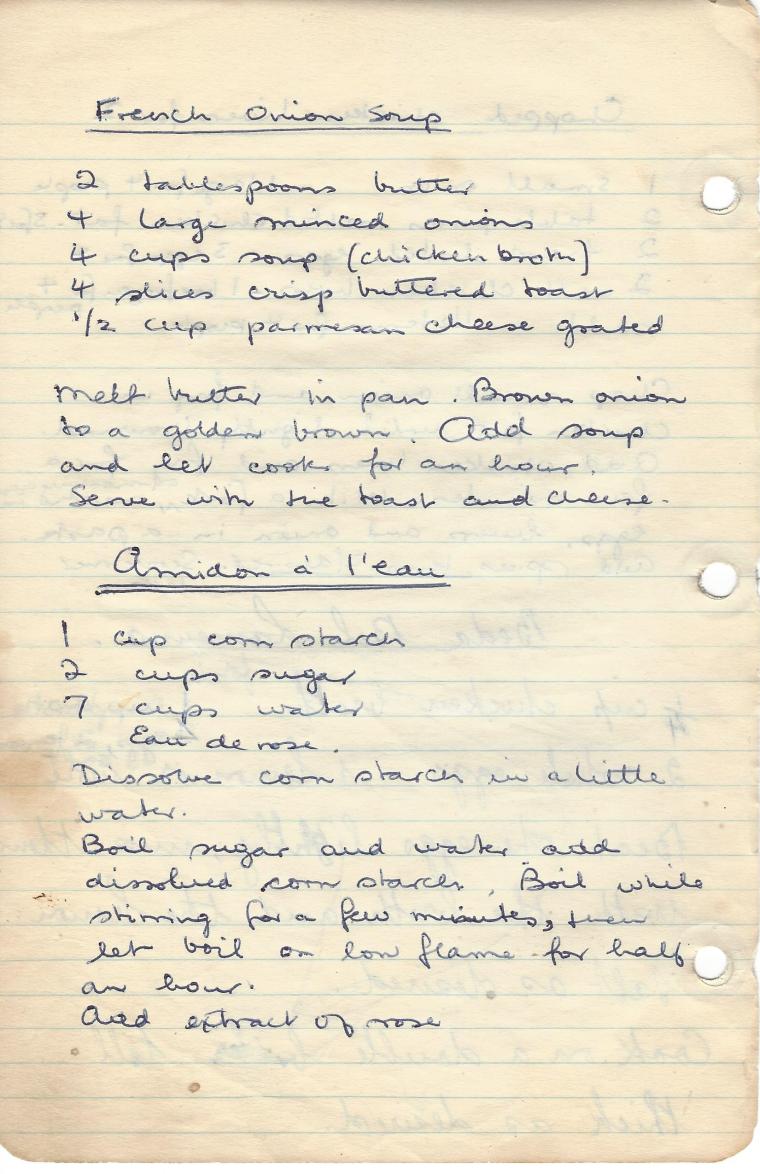 French Onion Soup
2 tablespoons butter
4 large minced onions
4 cups soup (chicken broth)
4 slices crisp buttered toast
1/2 cup parmesan cheese grated
Melt butter in pan. Brown onion
to a golden brown. Add soup
and let cook for an hour.
Serve with the toast and cheese.
Amidon à l'eau
1 cup corn starch
2 cups sugar
7 cups water
Eau de rose.
Dissolve corn starch in a little
water.
Boil sugar and water add
dissolved corn starch. Boil while
stirring for a few minutes, then
let boil on low flame for half
an hour.
Add extract of rose